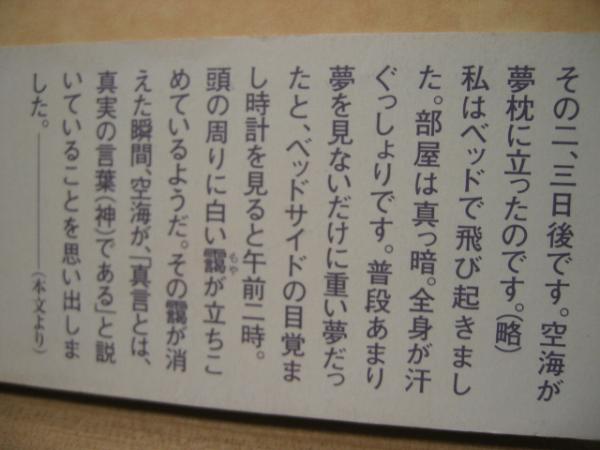 その二、三日後です。空海が
夢枕に立ったのです。(略)
私はベッドで飛び起きまし
た。部屋は真っ暗。全身が汗
ぐっしょりです。普段あまり
夢を見ないだけに重い夢だっ
たと、ベッドサイドの目覚ま
し時計を見ると午前二時。
頭の周りに白い靄が立ちこ
もや
めているようだ。その靄が消
えた瞬間、空海が、「真言とは、
真実の言葉(神)である」と説
いていることを思い出しま
した。――――(本文より)